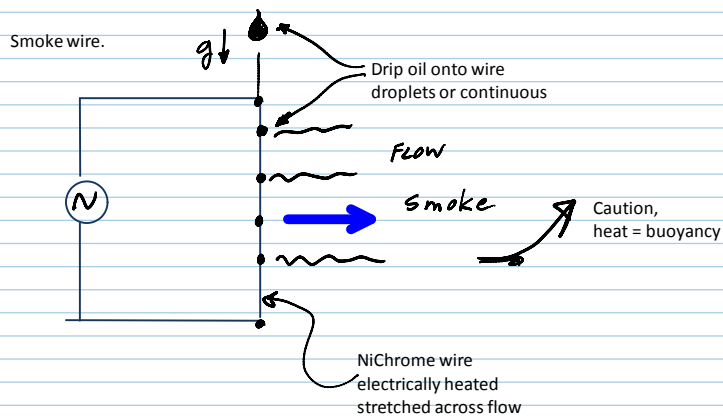 Smoke wire.
g
Drip oil onto wire
droplets or continuous
FLOW
Smoke
Caution,
heat = buoyancy
N
NiChrome wire
electrically heated
stretched across flow